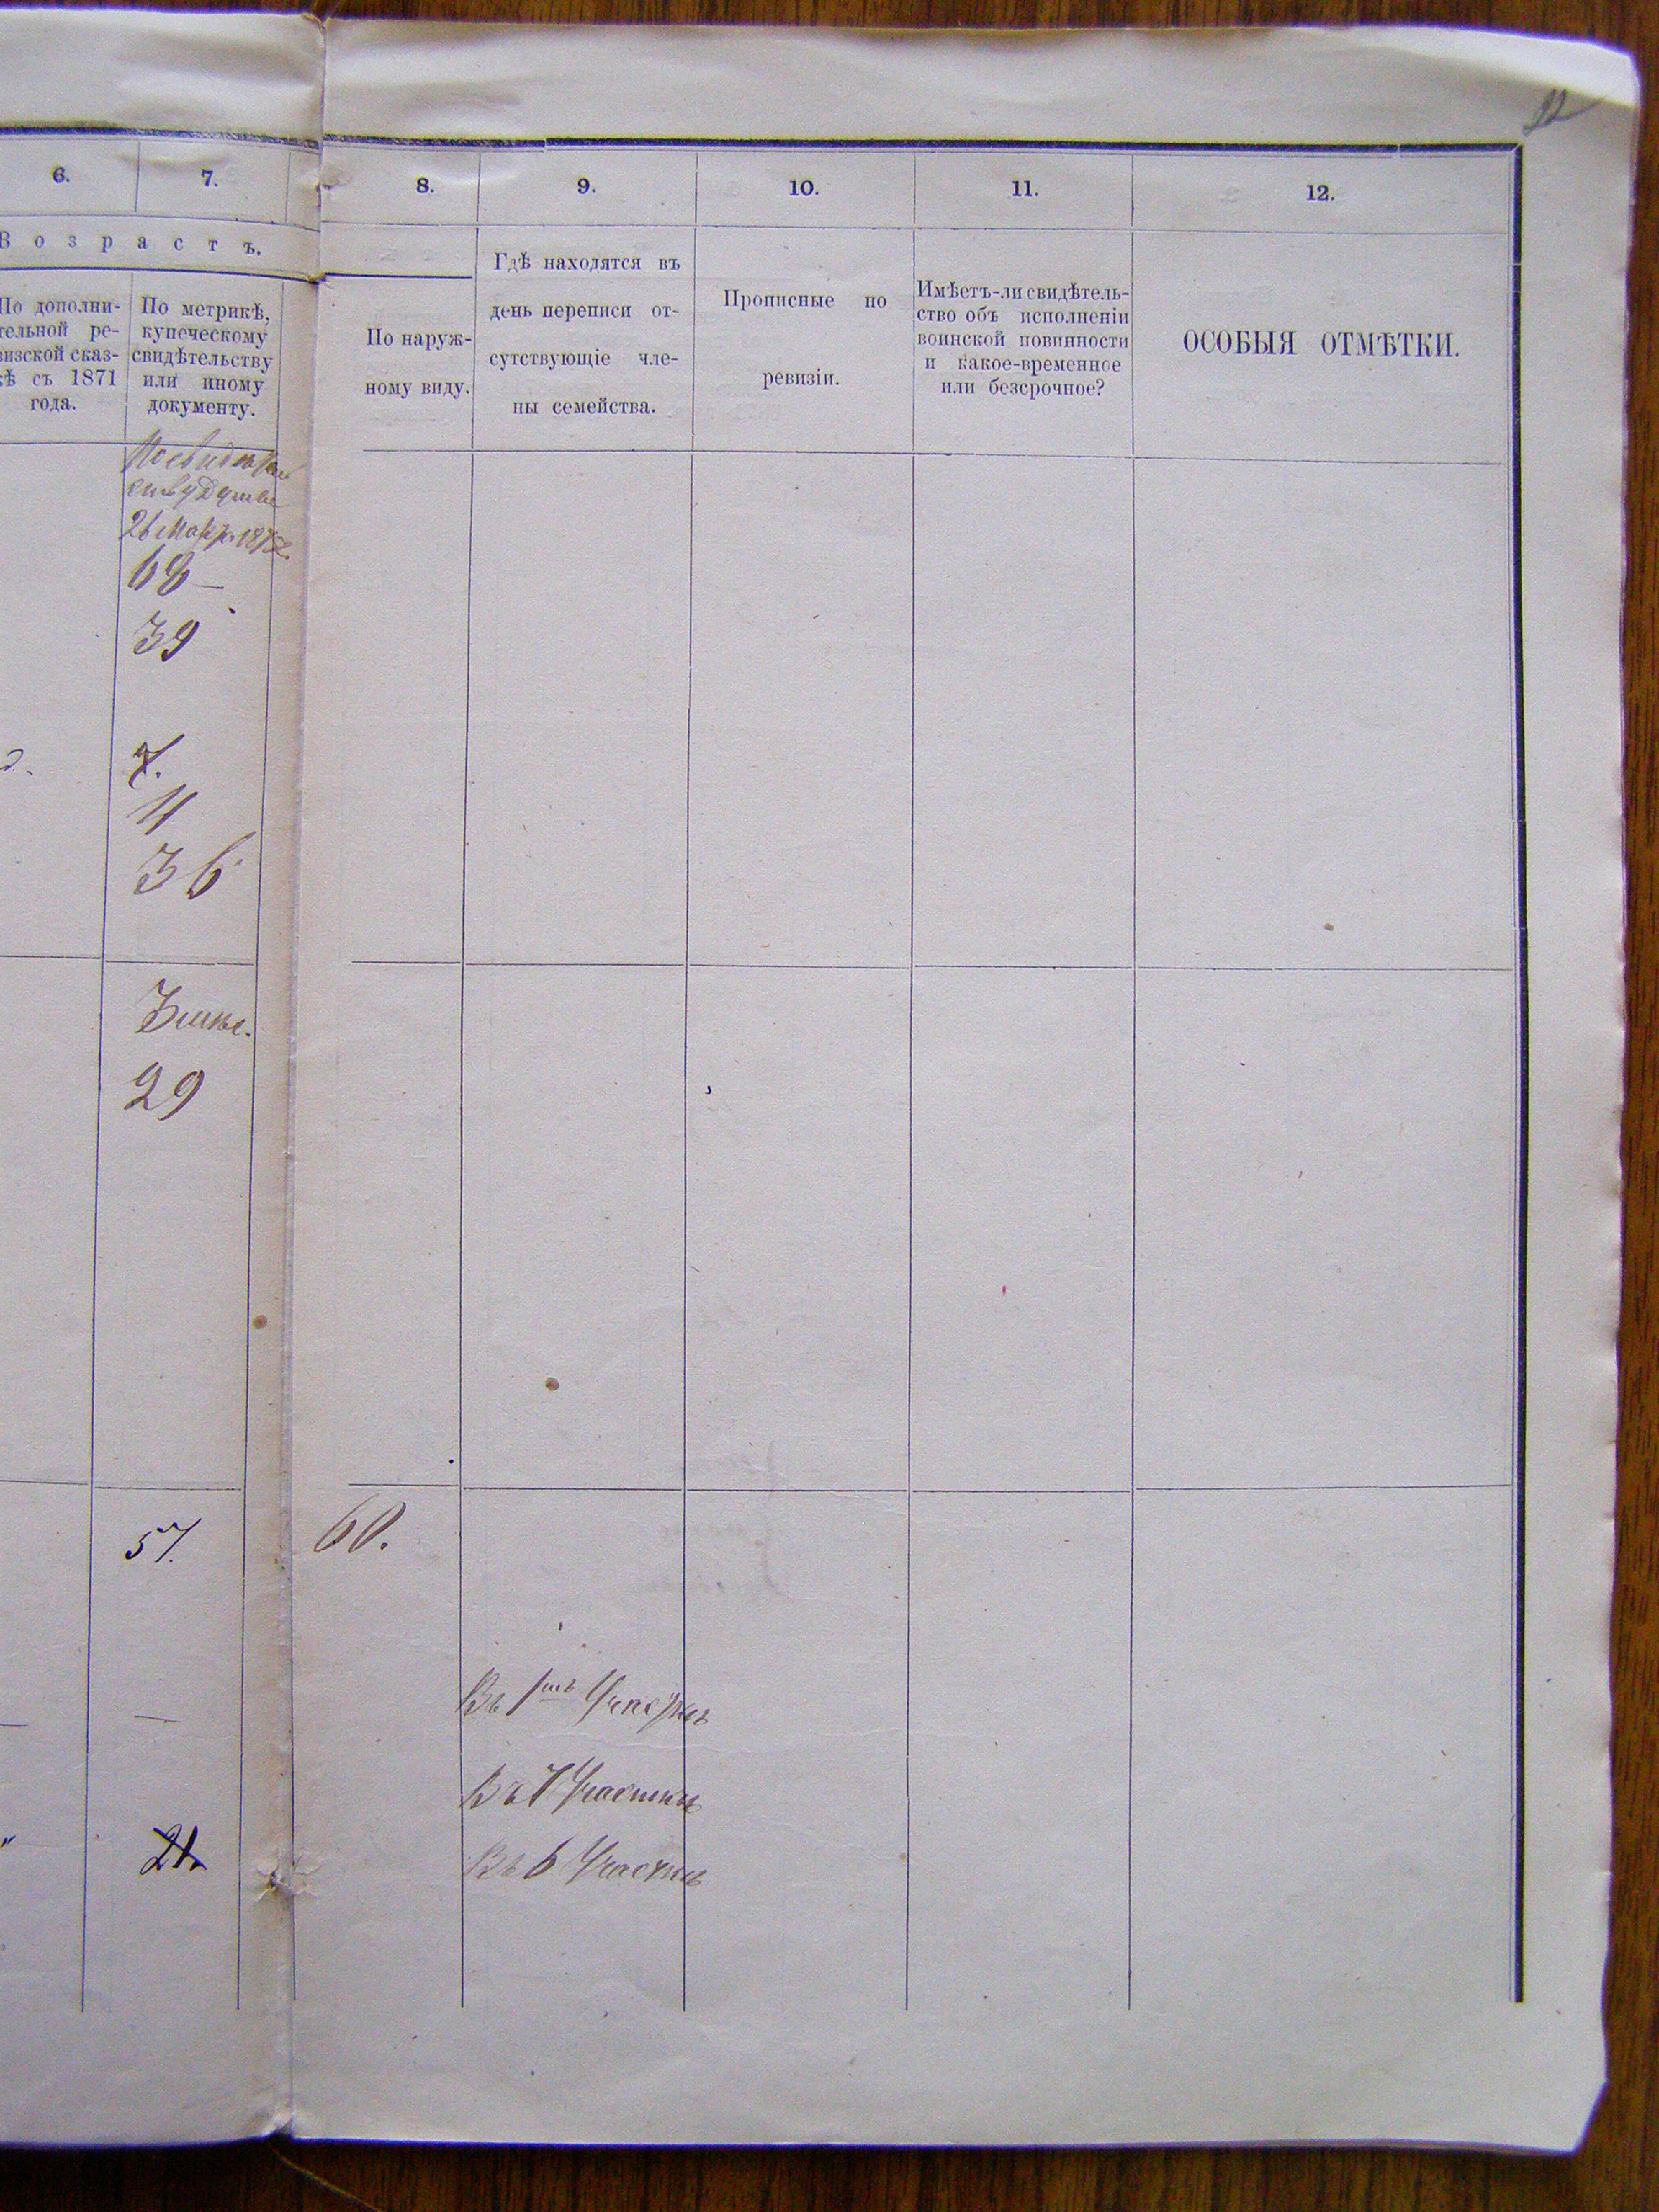 22
6.
7.
8.
9.
10.
11.
12.
Возрастъ.
По дополни-
тельной ре-
визской сказ-
кѣ съ 1871
года.
По метрикѣ,
купеческому
свидѣтельству
или иному
документу.
По наруж-
ному виду.
Гдѣ находятся въ
день переписи от-
сутствующіе чле-
ны семейства.
Прописные по
ревизіи.
Имѣетъ-ли свидѣтель-
ство объ исполненіи
воинской повинности
и какое-временное
или безсрочное?
ОСОБЫЯ ОТМѢТКИ.
26 187
68
39
7.
11
36
29
57.
60.
Въ 1мъ Участкѣ
Въ 7 Участкѣ
Въ 6 Участкѣ
21.